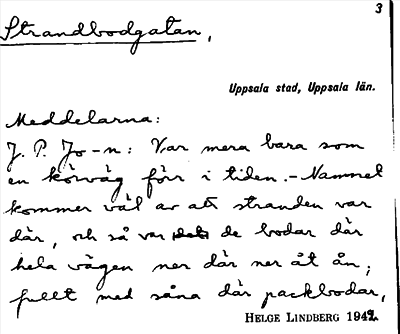 3
Strandbodgatan,
Uppsala stad, Uppsala län.
Meddelarna:
J. P. Jo-n: Var mera bara som
en körväg förr i tiden. - Namnet
kommer väl av att stranden var
där, och så var de bodar där
hela vägen ner där ner åt ån;
fullt med såna där packbodar,
HELGE LINDBERG 1942.